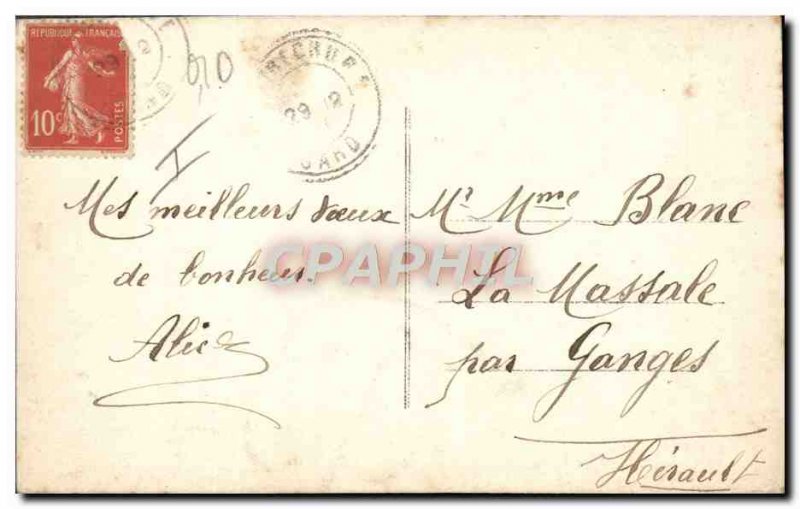 REPUBLIQUE FRANÇAISE
10c
POSTES
29 12
GARD
Mes meilleurs vœux
de bonheur.
Alice
Mr Mme Blanc
La Massale
par Ganges
Hérault
CPAPHIL